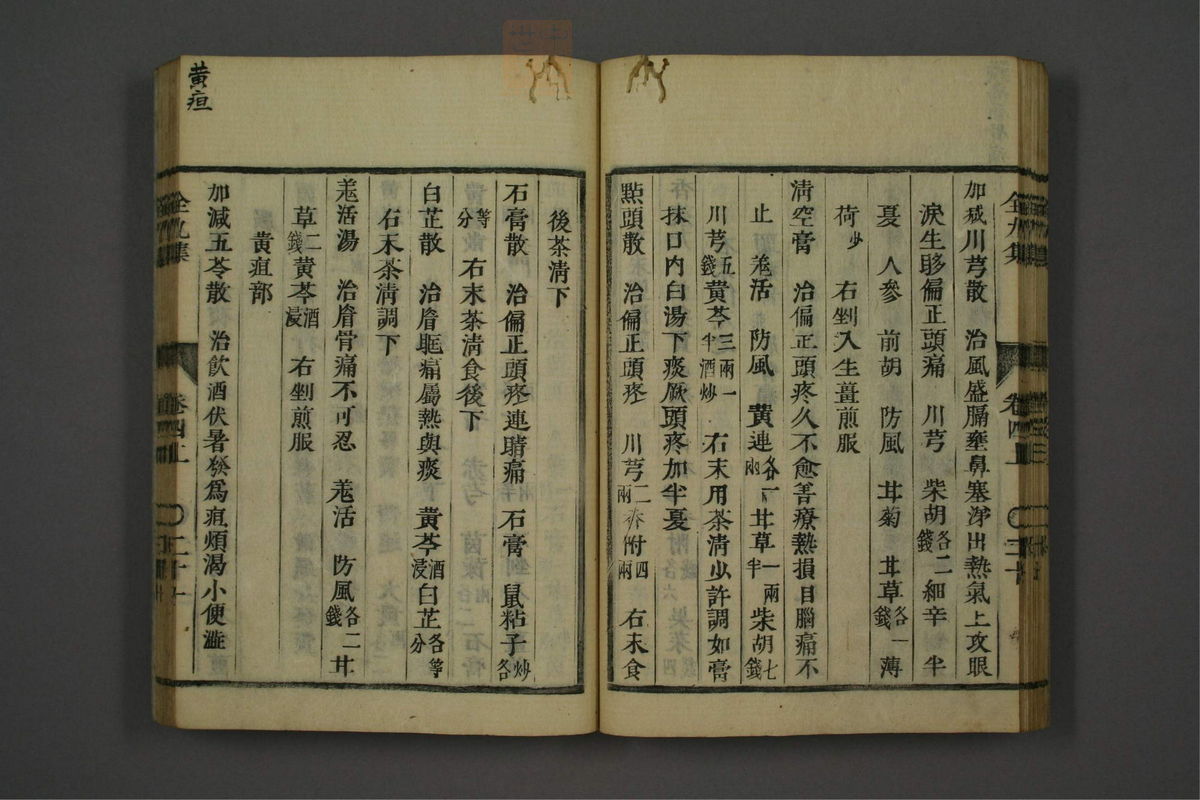 加减川芎散　治風盛膈壅鼻塞涕出熱氣上攻眼
淚生眵偏正頭痛　川芎　柴胡各二錢細辛　半
夏　人參　前胡　防風　甘菊　甘草各一錢　薄
荷少　右剉入生薑煎服
清空膏　治偏正頭疼久不愈善療熱損目腦痛不
止　羗活　防風　黄連各一兩　甘草一兩半　柴胡七錢
川芎五錢黄芩三兩一半酒炒　右末用茶清少許調如膏
抹口内白湯下痰厥頭疼加半夏
點頭散　治偏正頭疼　川芎二兩香附四兩　右末食
後茶清下
石膏散　治偏正頭疼連睛痛　石膏　鼠粘子炒各
等分　右末茶清食後下
白芷散　治眉眶痛屬熱與痰　黄芩酒浸白芷各等分
右末茶清調下
羗活湯　治眉骨痛不可忍　羗活　防風各二錢甘
草二錢黄芩酒浸　右剉煎服
黄疸部
加減五苓散　治飲酒伏暑發爲疸煩渴小便澁
黄疸
全九集
卷四上
二十
全九集
卷四上
二十一